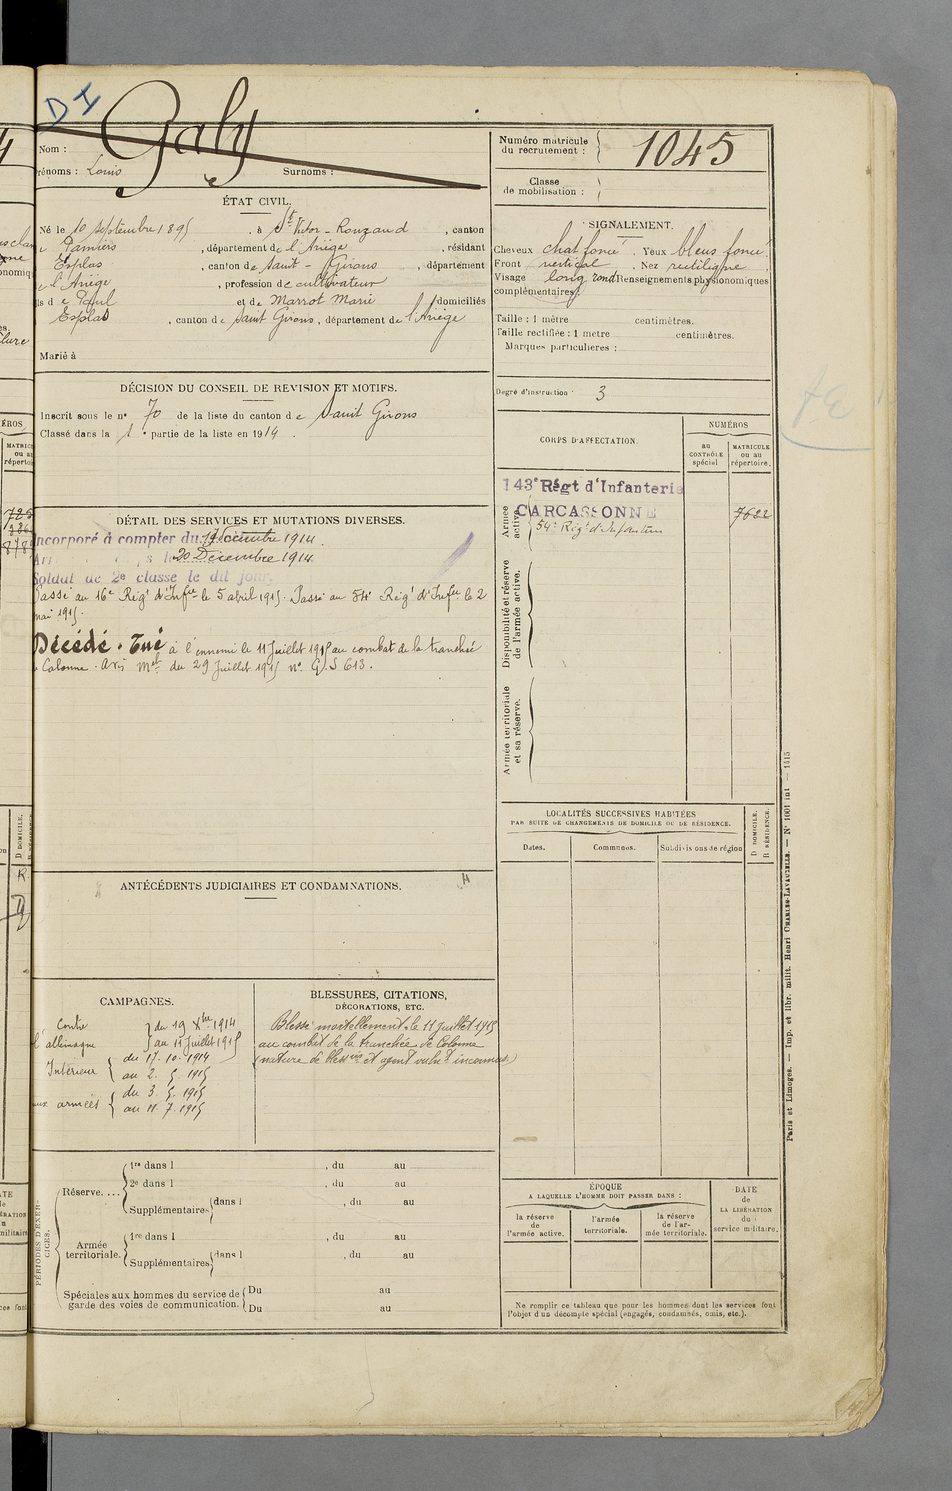 D I
Galy
Nom :
Prénoms : Louis Surnoms :
Numéro matricule
du recrutement :
1045
Classe
de mobilisation :
ÉTAT CIVIL.
Né le 10 septembre 1895, à St Victor-Rouzaud, canton
de Pamiers, département de l'Ariège, résidant
Esplas, canton de Saint-Girons, département
de l'Ariège, profession de cultivateur
fils de Paul et de Marrot Marie domiciliés
Esplas, canton de Saint Girons, département de l'Ariège
Marié à
SIGNALEMENT.
Cheveux chat foncé. Yeux bleus foncé.
Front vertical, Nez rectiligne.
Visage long rond Renseignements physionomiques
complémentaires :
Taille : 1 mètre centimètres.
Taille rectifiée : 1 mètre centimètres.
Marques particulières :
Degré d'instruction : 3
DÉCISION DU CONSEIL DE REVISION ET MOTIFS.
Inscrit sous le n° 70 de la liste du canton de Saint Girons
Classé dans la 1e partie de la liste en 1914.
CORPS D'AFFECTATION
NUMÉROS
au
CONTRÔLE
spécial
MATRICULE
ou au
répertoire.
143e Régt d'Infanterie
CARCASSONNE
54e Régt d'Infanterie
7622
Armée
active.
Disponibilité et réserve
de l'armée active.
Armée territoriale
et sa réserve.
DÉTAIL DES SERVICES ET MUTATIONS DIVERSES.
Incorporé à compter du 19 Décembre 1914.
20 Décembre 1914.
Soldat de 2e classe le dit jour.
Passé au 16e Régt d'Infie le 5 avril 1915. Passé au 54e Régt d'Infie le 2
mai 1915.
Décédé. Tué à l'ennemi le 11 Juillet 1915 au combat de la tranchée
de Calonne. Avis Mel du 29 Juillet 1915 n° G.S 613.
LOCALITÉS SUCCESSIVES HABITÉES
PAR SUITE DE CHANGEMENTS DE DOMICILE OU DE RÉSIDENCE.
Dates. Communes. Subdivisions de région
D DOMICILE.
R RÉSIDENCE.
ANTÉCÉDENTS JUDICIAIRES ET CONDAMNATIONS.
CAMPAGNES.
Contre du 19 Xbre 1914
l'allemagne au 11 Juillet 1915
Intérieur du 17. 10. 1914
au 2. 5. 1915
aux armées du 3. 5. 1915
au 11. 7. 1915
BLESSURES, CITATIONS,
DÉCORATIONS, ETC.
Blessé mortellement le 11 Juillet 1915
au combat de la tranchée de Calonne
(nature de blesres et agent vulnt inconnus)
PÉRIODES D'EXERCICES.
Réserve.... 1re dans l , du au
2e dans l , du au
Supplémentaires dans l , du au
Armée
territoriale. 1re dans l , du au
Supplémentaires dans l , du au
Spéciales aux hommes du service de
garde des voies de communication. Du au
Du au
ÉPOQUE
A LAQUELLE L'HOMME DOIT PASSER DANS :
la réserve
de
l'armée active.
l'armée
territoriale.
la réserve
de l'ar-
mée territoriale.
DATE
de
LA LIBÉRATION
du
service militaire.
Ne remplir ce tableau que pour les hommes dont les services font
l'objet d'un décompte spécial (engagés, condamnés, omis, etc.).
Paris et Limoges. — Imp. et libr. milit. Henri CHARLES-LAVAUZELLE. — N° 1001 int — 1415